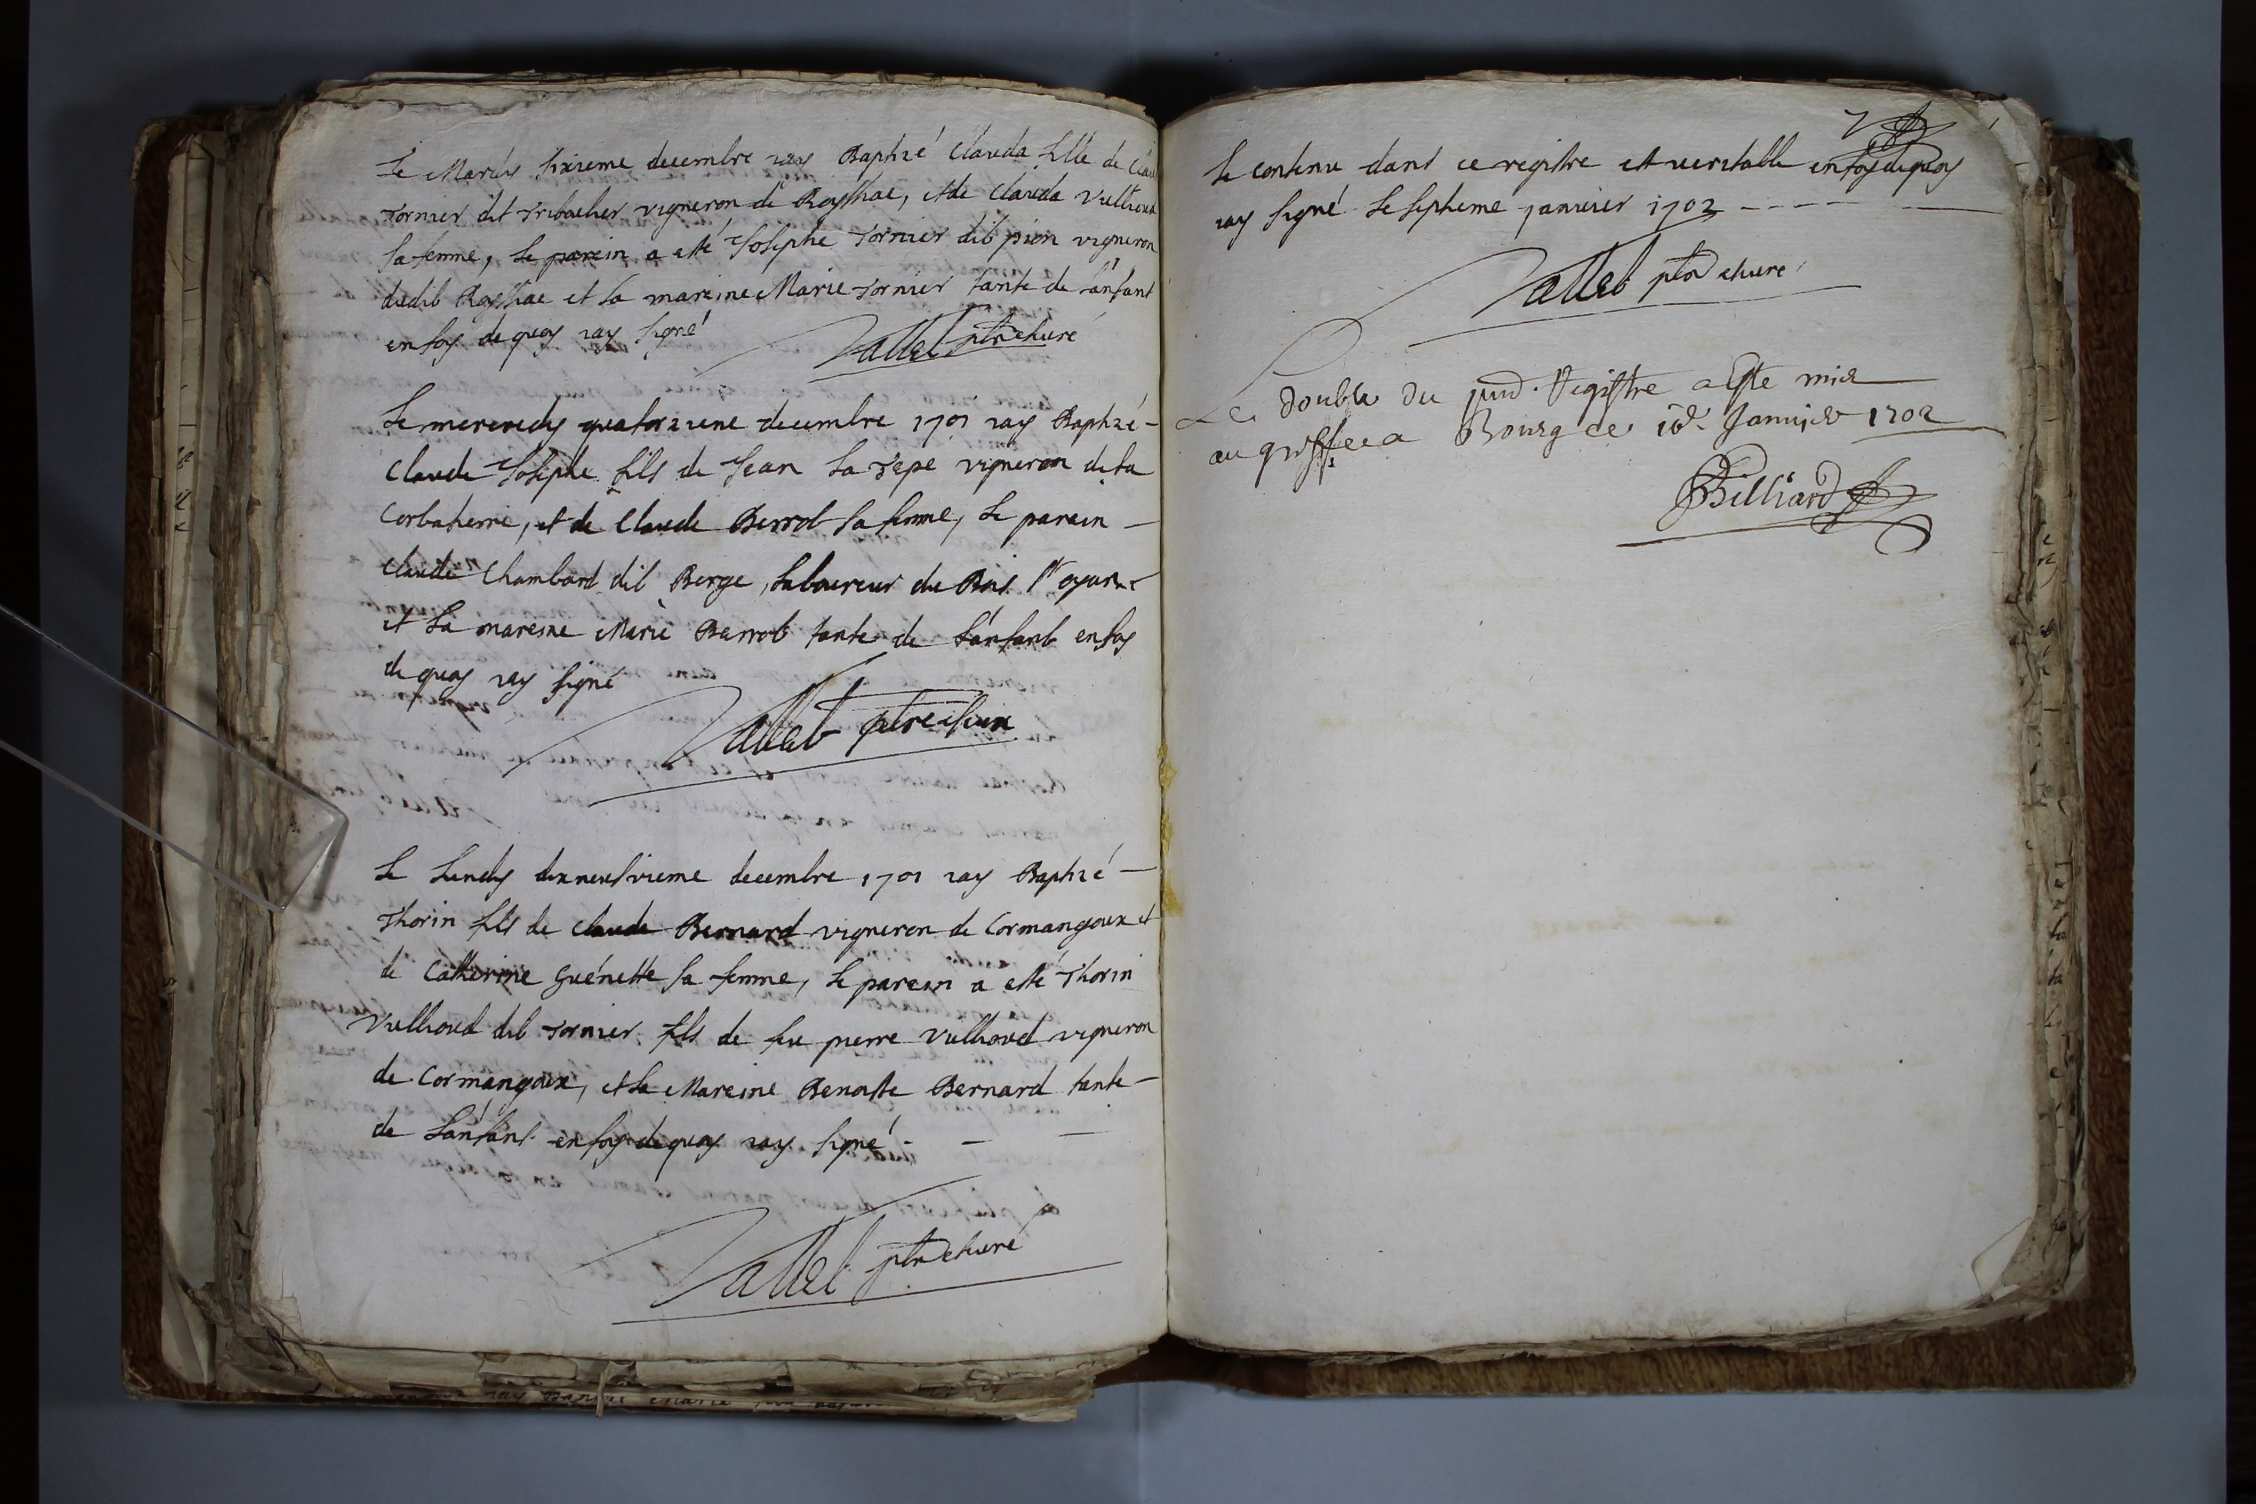 Le Mardy sixieme decembre jay Baptizé Clauda fille de Clau
Tornier dit Tribacher vigneron de Rossiae, et de Clauda Vullioud
sa femme, le parein a esté Josephe Tornier dit pion vigneron
dudit Rossiae et la mareine Marie Tornier tante de l'anfant
en foy de quoy jay signé
Vallet ptre et curé
Le mercredy quatorzieme decembre 1701 jay Baptizé
Claude Josephe fils de Jean la Tepe vigneron de la
Corbatiere, et de Claude Berrot sa femme, le parein
Claude Chambard dit Berge, laboureur du Bois
et la mareine Marie Berrot tante de l'anfant en foy
de quoy jay signé
Vallet ptre et cure
Le Lundy dixneufvieme decembre 1701 jay Baptizé
Thorin fils de Claude Bernard vigneron de Cormangoux et
de Catherine Guénette sa femme, le parein a esté Thorin
Vullioud dit Tornier fils de feu pierre Vullioud vigneron
de Cormangoux, et la Mareine Benoitte Bernard tante
de l'anfant en foy de quoy jay signé
Vallet ptre et curé
Le contenu dans ce registre est veritable en foy de quoy
jay signé le septieme janvier 1702
Vallet ptre et curé
Le double du Registre a Esté mis
au greffe a Bourg ce Janvier 1702
Billiard